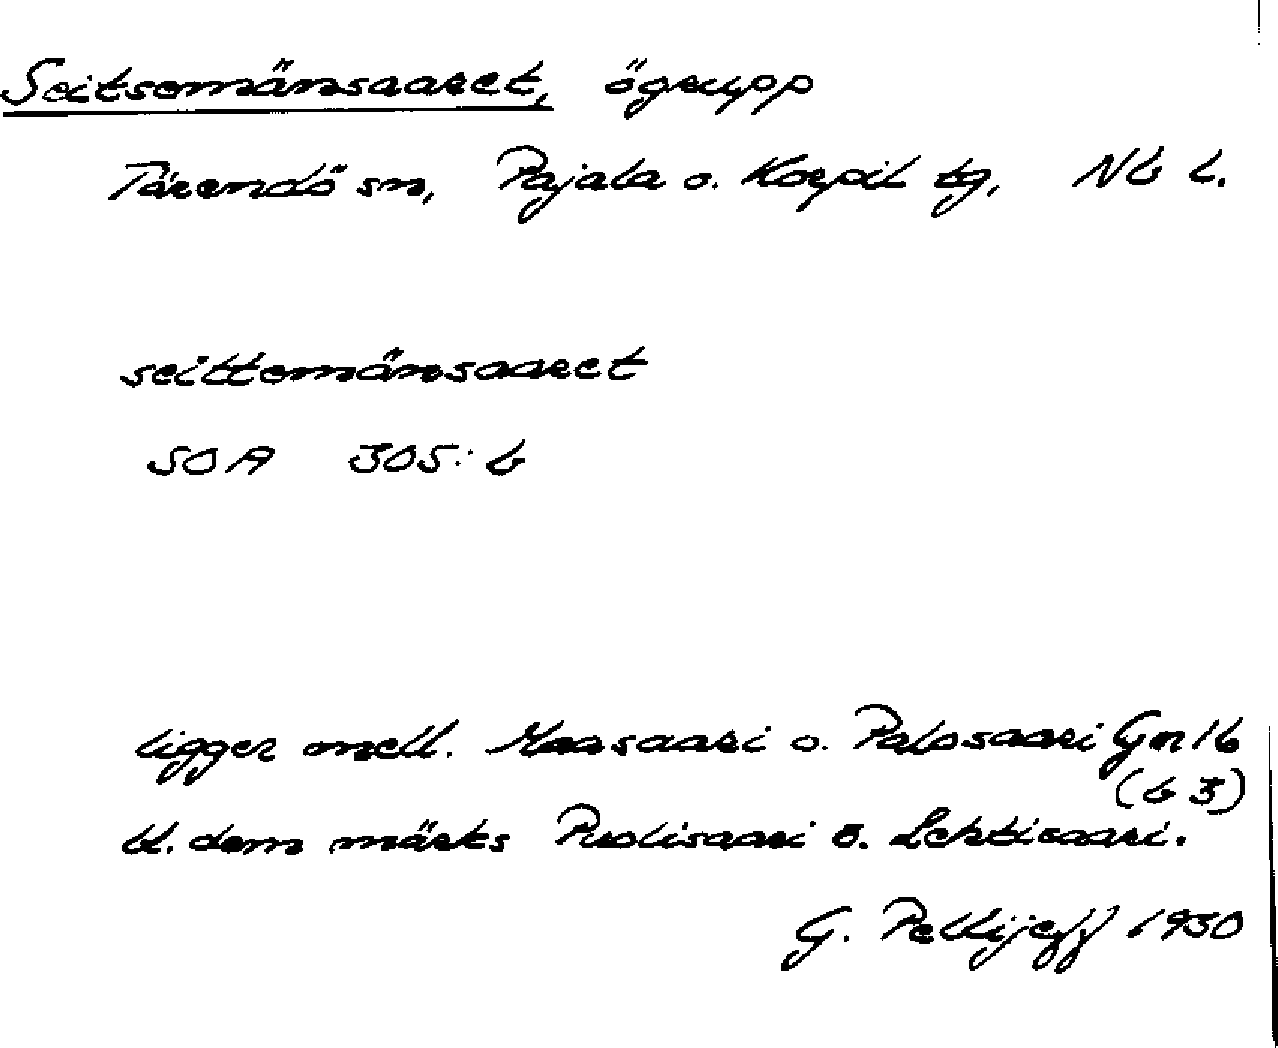 Seitsemänsaaret, ögrupp
Tärendö sn, Pajala o. Korpil tg, Nb l.
seittemänsaaret
SOA 305: b
ligger mell. Maasaari o. Palosaari Gm 16
(b 3)
bl. dem märks Puolisaari o. Lehtisaari.
G. Pellijeff 1930